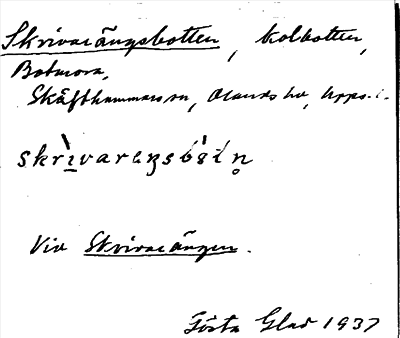 Skrivarängsbotten, kolbotten,
Botarora,
Skäfthammars sn, Olands hd, Upps. l.
skrìvareŋsbòtn̥
Vid Skrivarängen.
Gösta Glad 1937